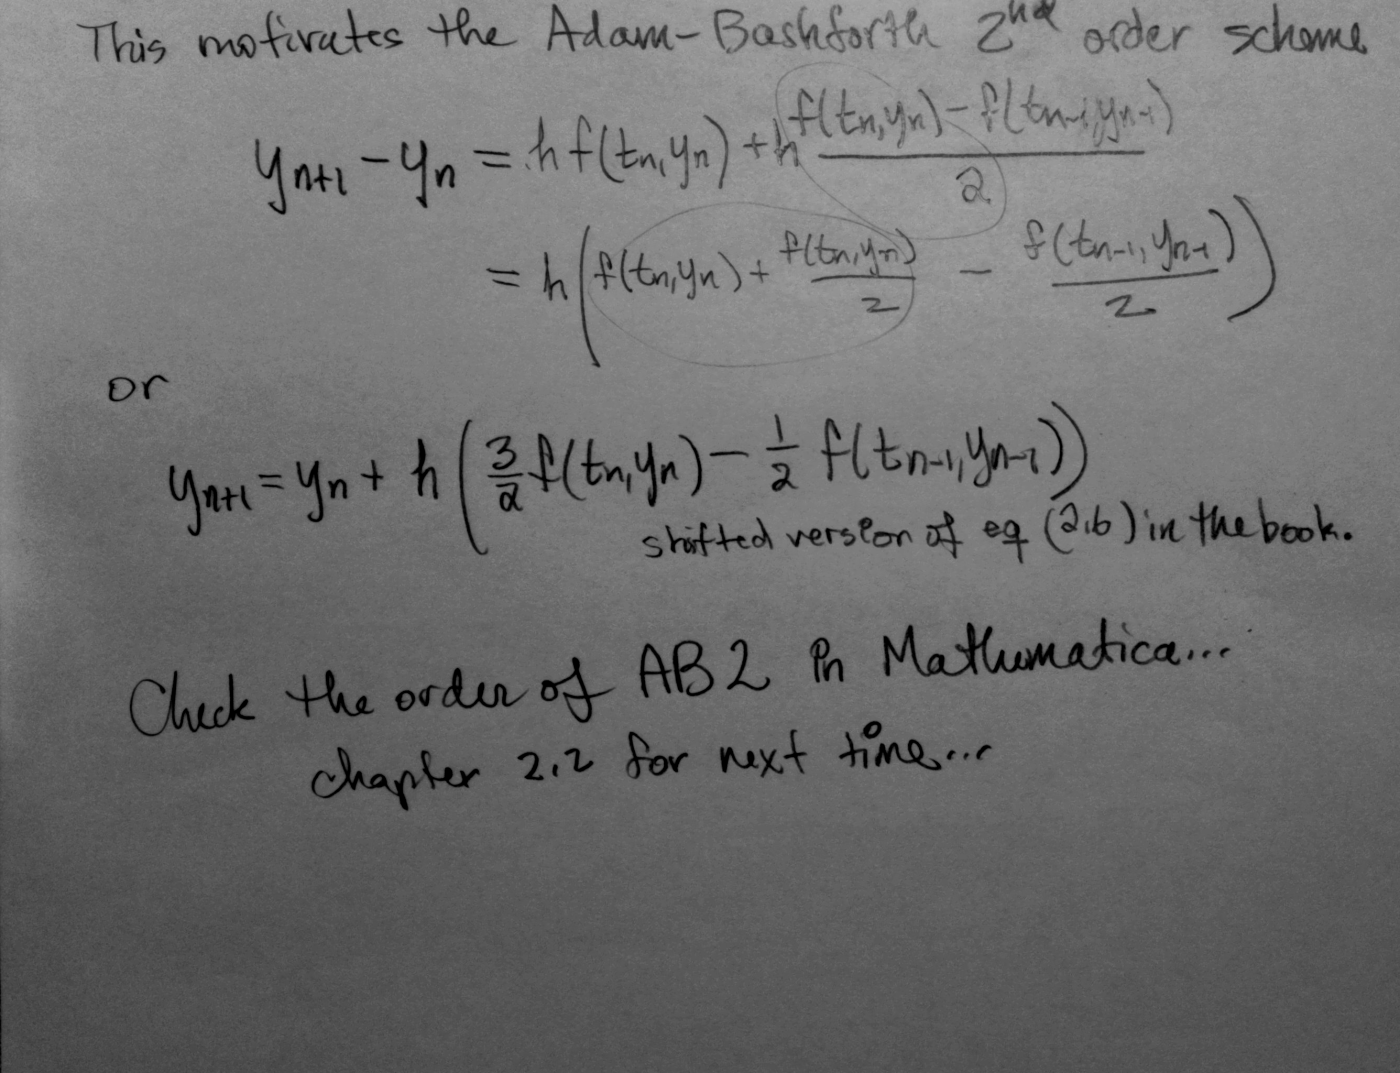 This motivates the Adam-Bashforth 2nd order scheme
y_{n+1} - y_n = h f(t_n, y_n) + h \frac{f(t_n, y_n) - f(t_{n-1}, y_{n-1})}{2}
= h ( f(t_n, y_n) + \frac{f(t_n, y_n)}{2} - \frac{f(t_{n-1}, y_{n-1})}{2} )
or
y_{n+1} = y_n + h ( \frac{3}{2} f(t_n, y_n) - \frac{1}{2} f(t_{n-1}, y_{n-1}) )
shifted version of eq (2.6) in the book.
Check the order of AB2 in Mathematica...
chapter 2.2 for next time...